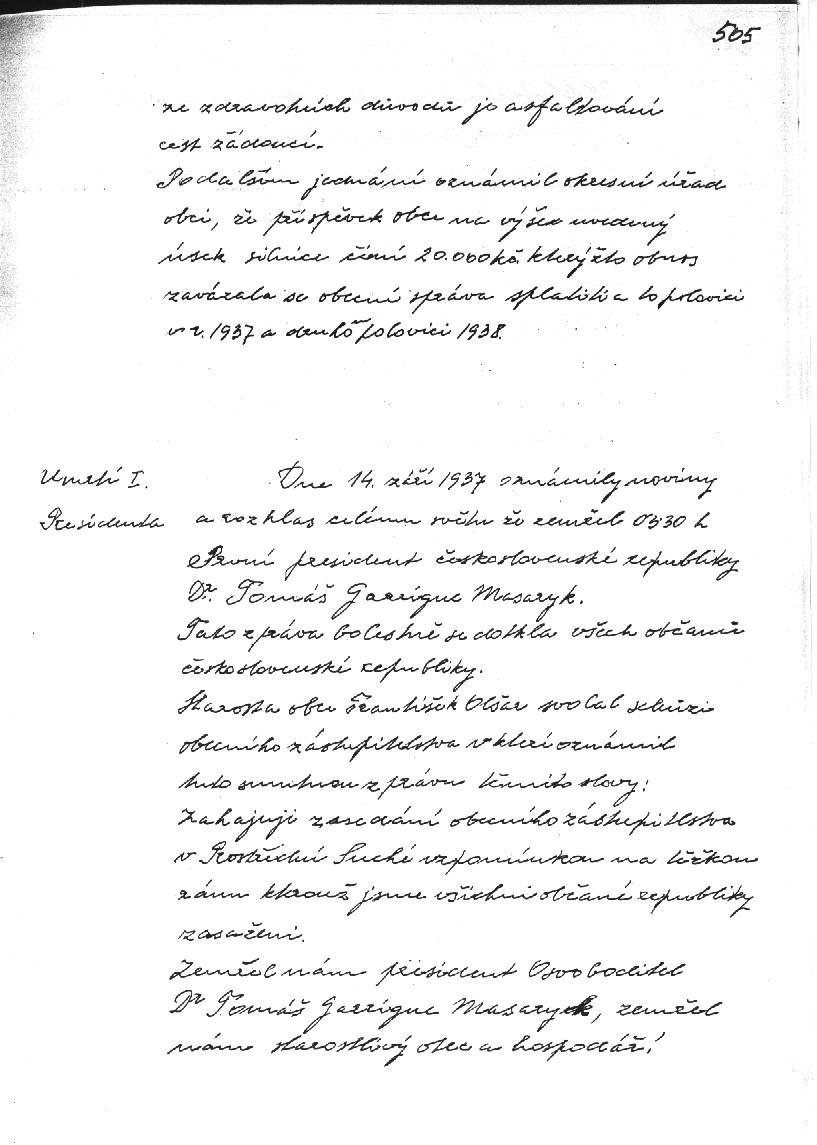 505
ze zdravotních důvodů je asfaltování
cest žádoucí.
Po dalším jednání oznámil okresní úřad
obci, že příspěvek obce na výše uvedený
úsek silnice činí 20.000 kč. kterýžto obnos
zavázala se obecní správa splatiti a to polovici
v r. 1937 a druhou polovici 1938.
Umrtí I.
Presidenta
Dne 14. září 1937 oznámily noviny
a rozhlas celému světu že zemřel 03 30 h
První president československé republiky
Dr. Tomáš Garrigue Masaryk.
Tato zpráva bolestně se dotkla všech občanů
československé republiky.
Starosta obce František Olšar svolal schůzi
obecního zástupitelstva v kteri oznámil
tuto smutnou zprávu těmito slovy:
Zahajuji zasedání obecního zástupitelstva
v Prostřední Suché vzpomínkou na těžkou
ránu kterouž jsme všichni občané republiky
zasaženi.
Zemřel nám president Osvoboditel
Dr Tomáš Garrigue Masaryk, zemřel
nám starostlivý otec a hospodář!